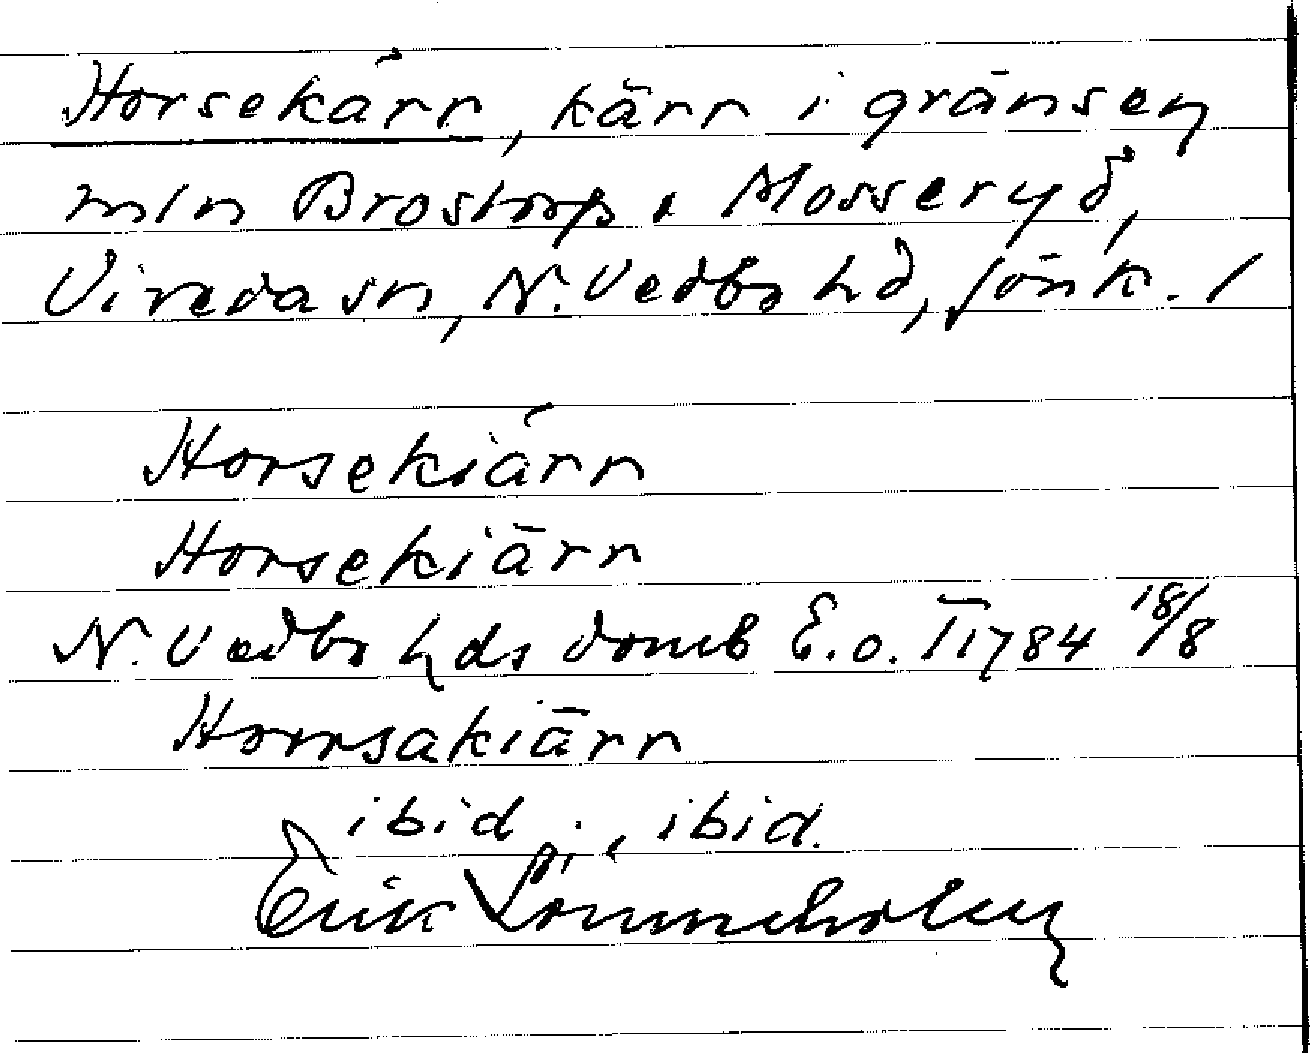 Horsekärr, kärr i gränsen
mln Brostorp o Mosseryd,
Vireda sn, N. Vedbo hd, Jönk. l
Horsekiärr
Horsekiärr
N. Vedbo hds domb E.o. T 1784 18/8
Horrsakiärr
ibid., ibid.
Erik Lönneholm